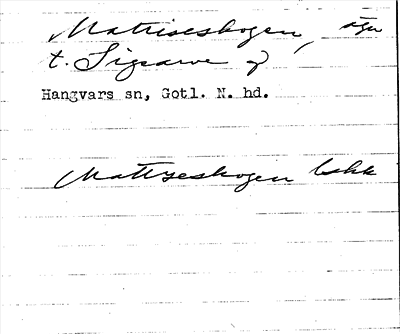 Matriseskogen, ägn
t. Sigsarve
Hangvars sn, Gotl. N. hd.
Matryseskogen Lskk